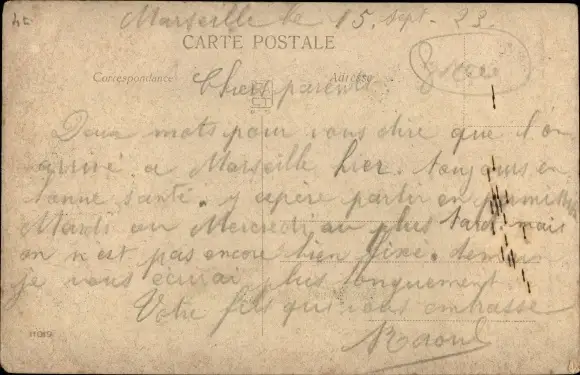 Marseille le 15. sept. 23.
CARTE POSTALE
Correspondance
Adresse
Chers parents
Deux mots pour vous dire que l'on
arrivé a Marseille hier. toujours en
bonne santé. j'espère partir en
Mardi au Mercredi au plus tard. mais
on n'est pas encore bien fixé. demain
je vous écrirai plus longuement
Votre fils qui vous embrasse
Raoul